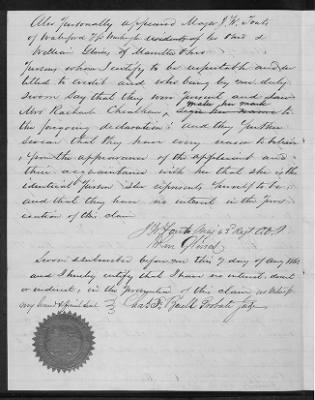 Also Personally appeared Major J. W. Fouts
of Waterford Washington residents of the State
William Glines of Marietta Ohio
Persons whom I certify to be respectable and en
titled to credit and who being by me duly
sworn say that they were present and saw
Mrs Rachael Cheatham, make her mark to
the foregoing declaration; and they further
swear that they have every reason to believe
from the appearance of the applicant and
their acquaintance with her that she is the
identical Person she represents herself to be
and that they have no interest in the pros
ecution of this claim
J W Fouts Maj 63 Regt O.V.I
Wm Glines
Sworn subscribed before me this 7 day of Aug
and I hereby certify that I have no interest direct
or indirect, in the prosecution of this claim as Witness
my hand & official seal
Probate Judge